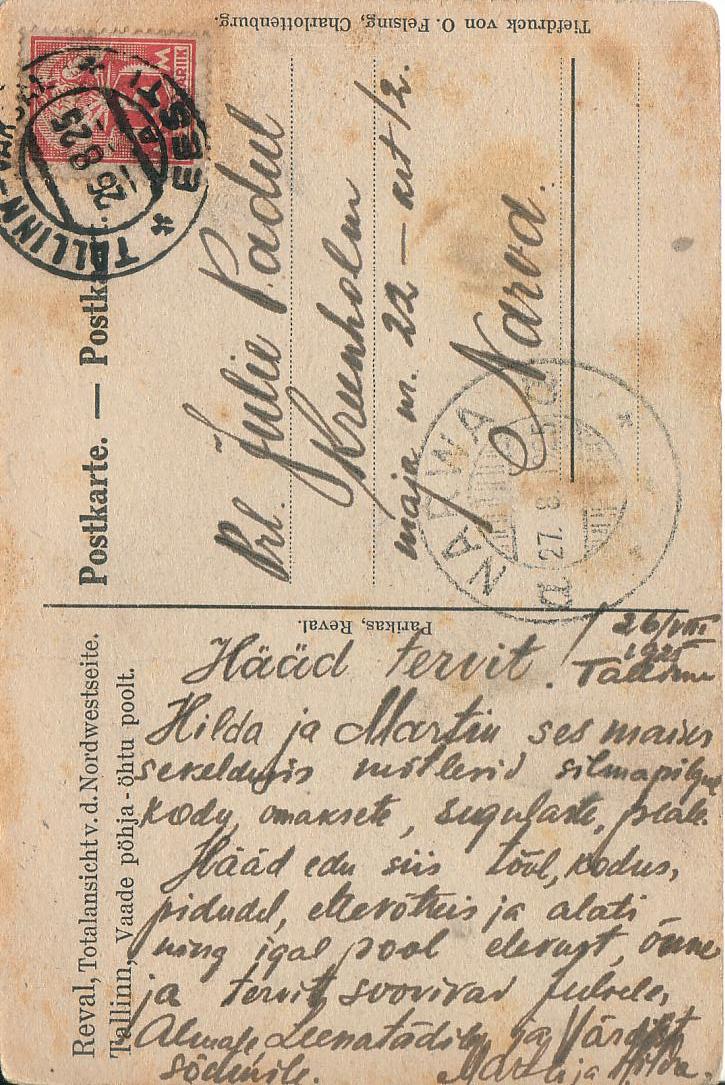 Tiefdruck von O. Felsing, Charlottenburg.
EESTI
TALLINN-VAKSAL
26 8 25
Postkarte. — Postkarte.
Prl. Julie Padul
Kreenholm
maja nr. 22 — krt 12.
Narva.
NARWA
27. 8
Parikas, Reval.
Reval, Totalansicht v. d. Nordwestseite.
Tallinn, Vaade põhja-õhtu poolt.
26/VIII
1925
Tallinn
Hääd tervit.
Hilda ja Martin ses maises
sekeldusis mõtlesid silmapilgul
kodu, omaksete, sugulaste, peale.
Hääd edu siis tööl, kodus,
pidudel, ettevõtteis ja alati
ning igal pool elevust, õnne
ja tervit soovivad Julsele,
Almale Leenatädile ja Värdi
sõdurile. Martin ja Hilda.